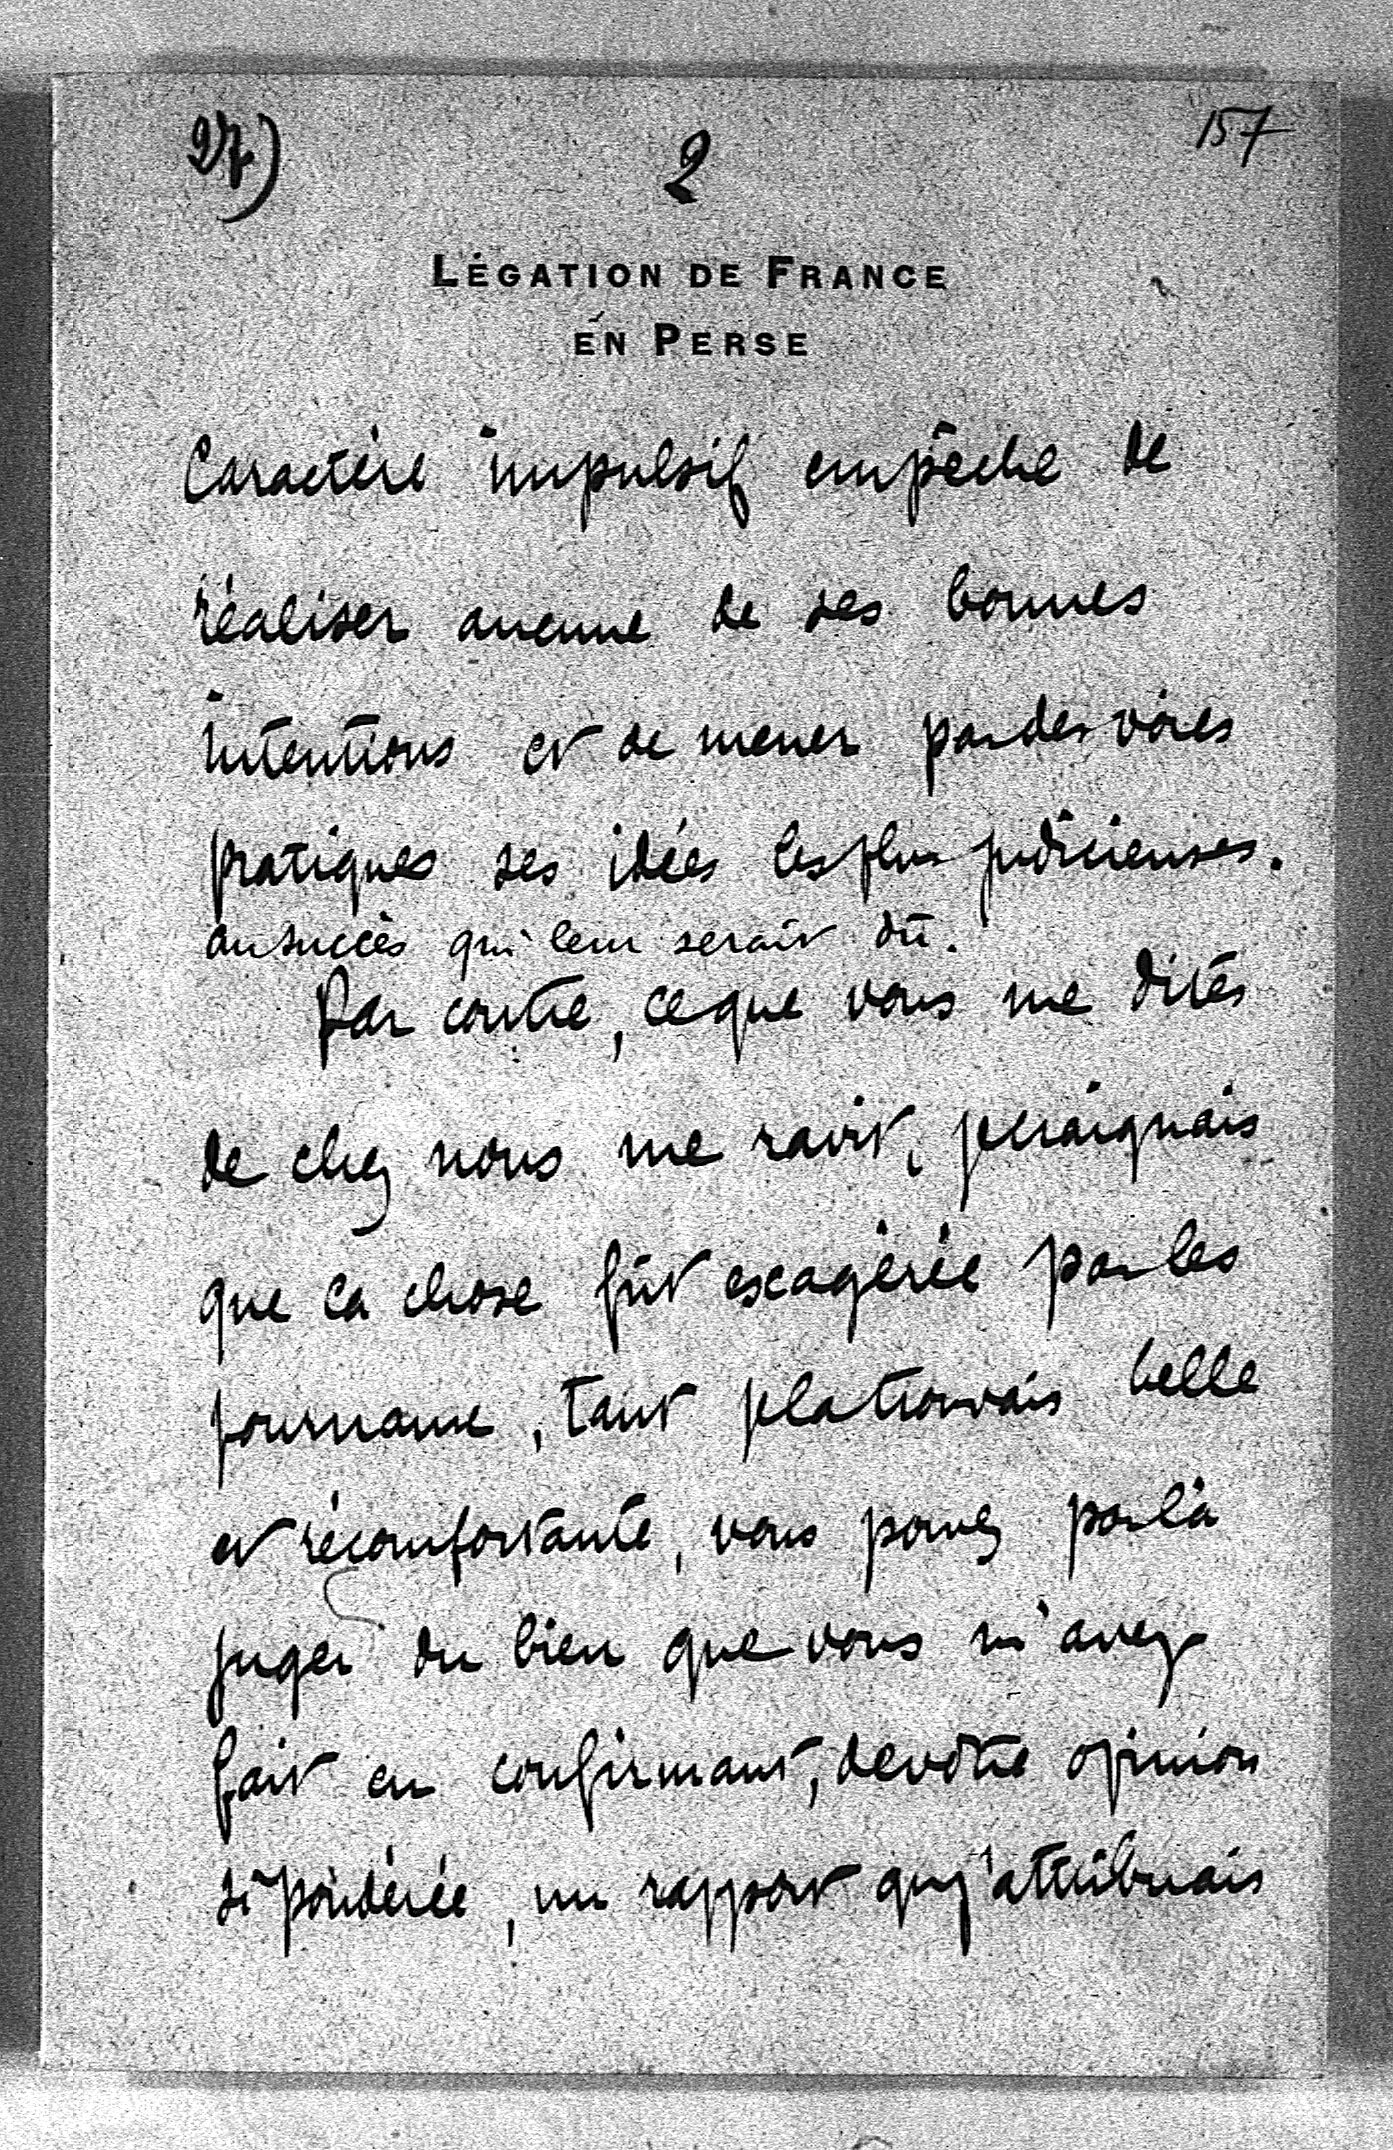 27)
2
157
LÉGATION DE FRANCE
EN PERSE
Caractère impulsif empêche de
réaliser aucune de ses bonnes
intentions et de mener par des voies
pratiques ses idées les plus judicieuses.
au succès qui leur serait dû.
Par contre, ce que vous me dites
de chez nous me ravit, je craignais
que la chose fût exagérée par les
journaux, tant je la trouvais belle
et réconfortante, vous pouvez par là
juger du bien que vous m'avez
fait en confirmant, de votre opinion
si pondérée, un rapport que j'attribuais